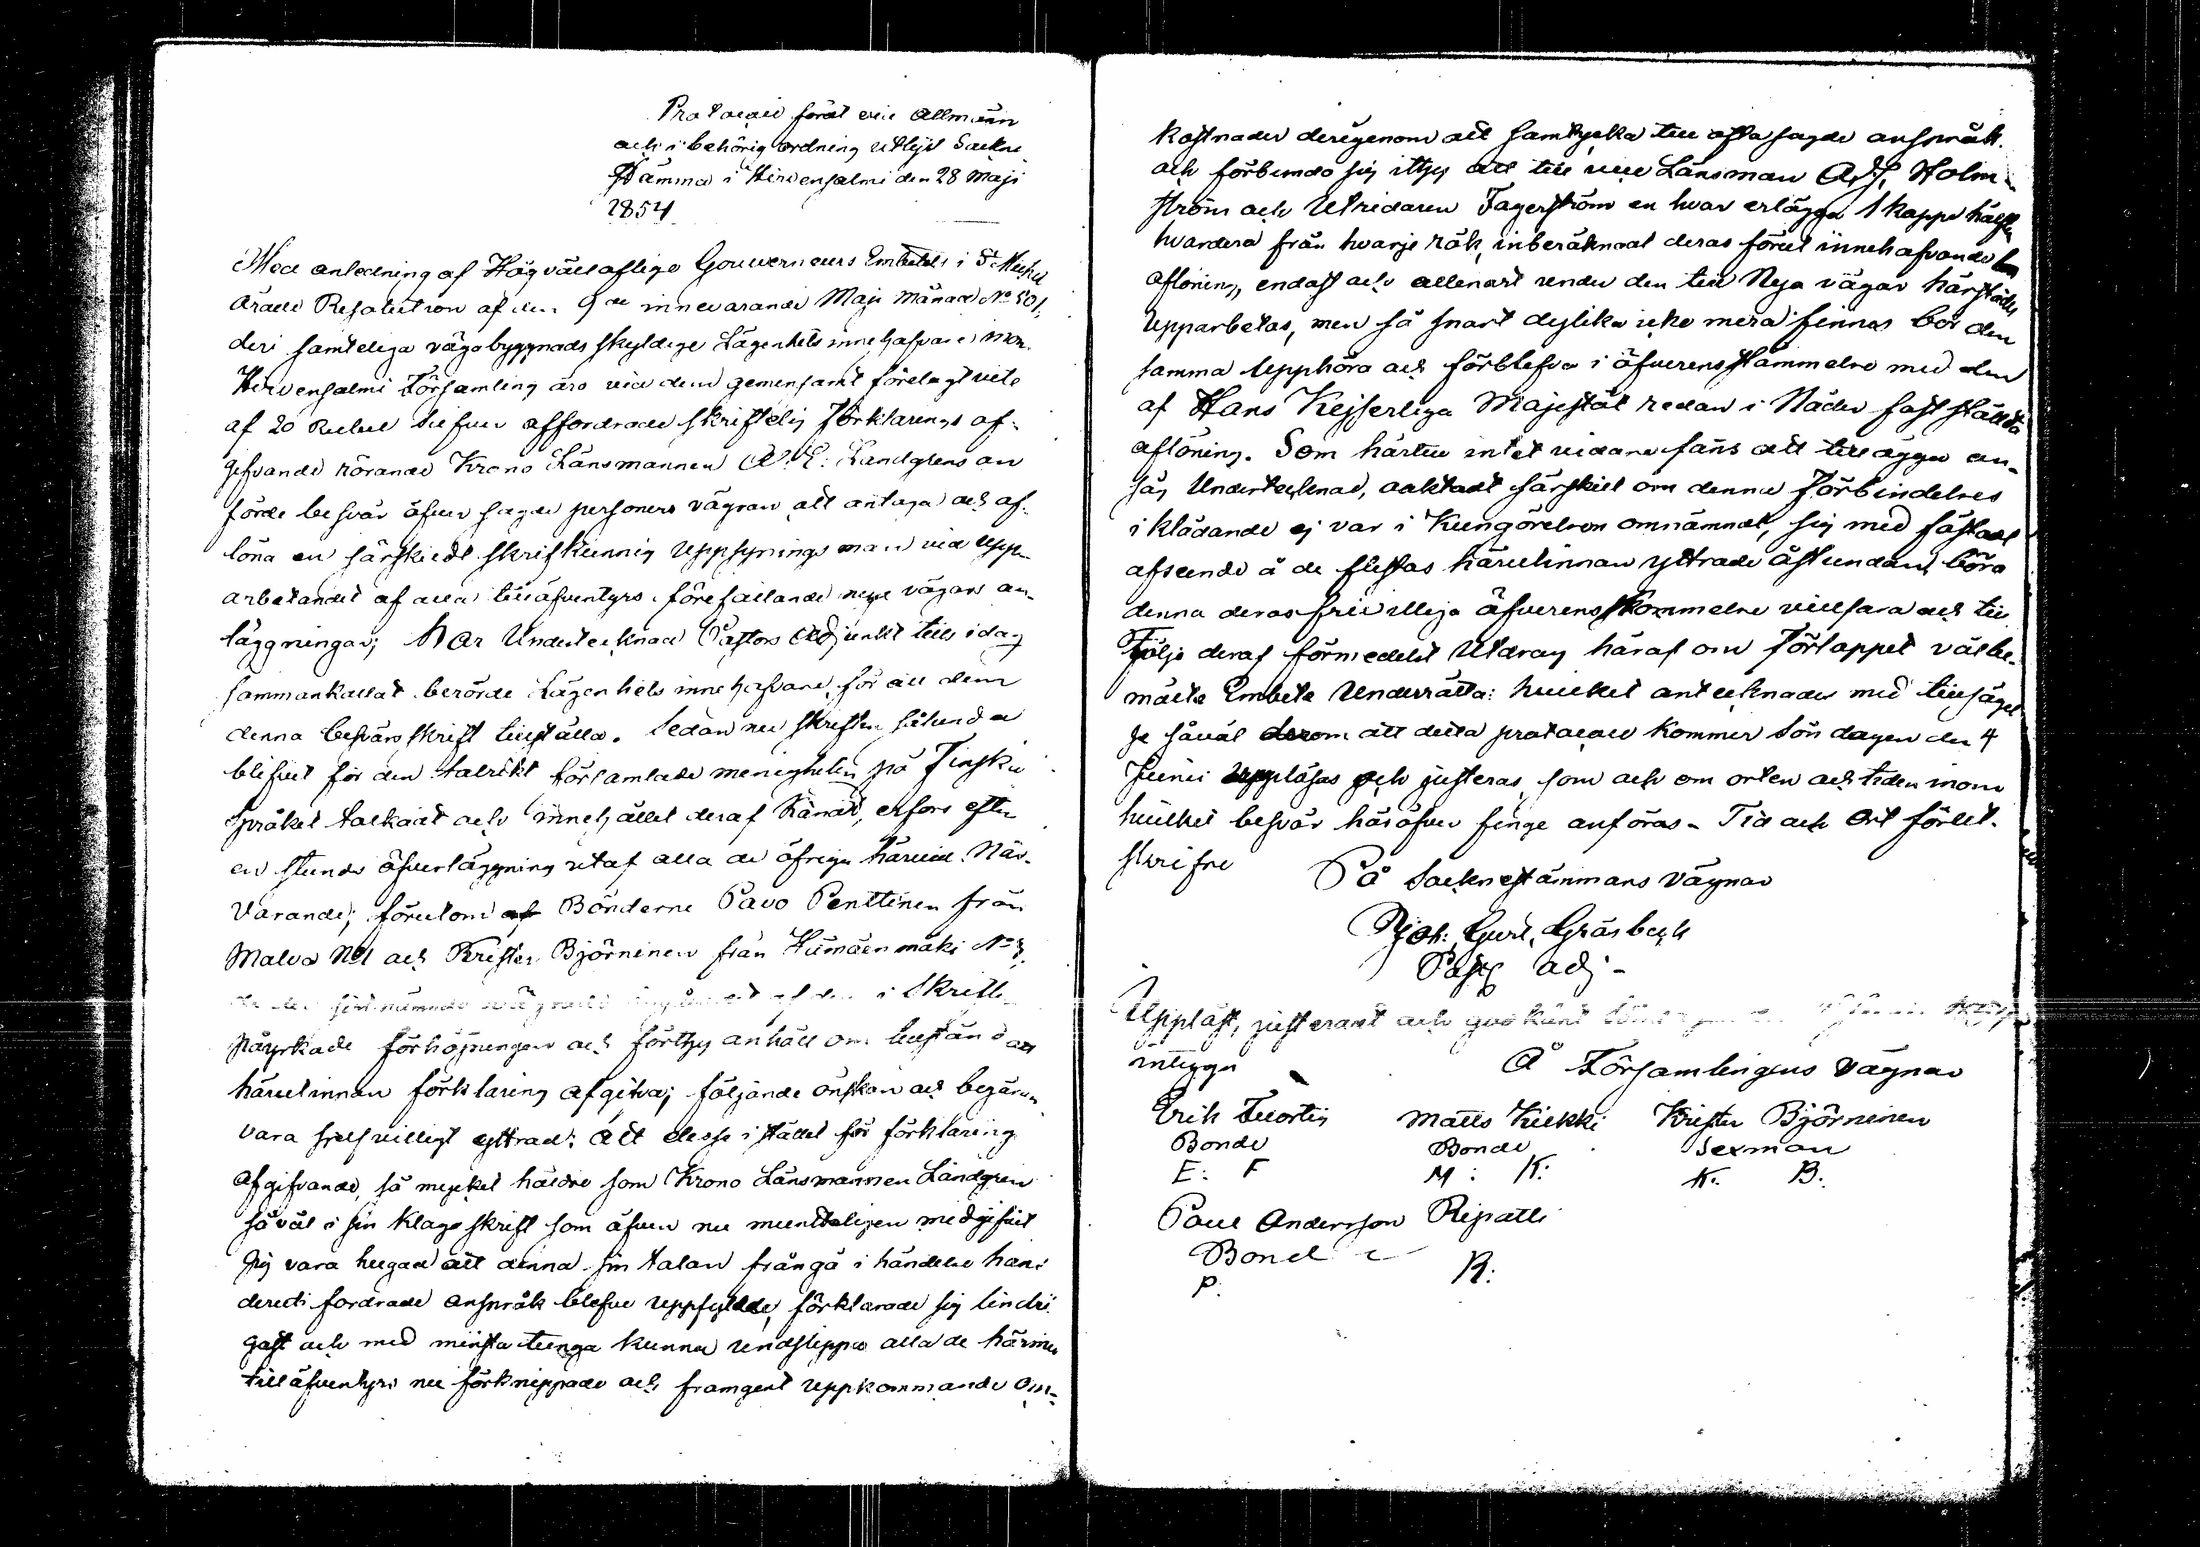 Protocoll fördt vid Allmänn
och i behörig ordning utlyst Sockne
Stämma i Hirvensalmi den 28 Maji
1854
Med anledning af Högvällaflige Gouverneurs Embetets i St Michel
ärade Resolution af den 9de innevarande Maji Månad No 501,
deri samtelige vägabyggnads skyldige Lägenhets innehafvare inom
Hirvensalmi Församling äro vid dem gemensamt förelagt vite
af 20 Rubel Silfver affordrade skriftelig förklarings af-
gifvande rörande Krono Länsmannen A. E. Landgrens an
förde besvär öfver sagde personers vägran att antaga och af-
löna en särskildt skrifkunnig Uppsynings man vid upp-
arbetandet af alla tilläfventyrs förefallande nya vägars an-
läggningar; Har Undertecknad Pastors Adjunkt till idag
sammankallat berörde Lägenhets innehafvare för att dem
denna besvärsskrift tillställa. Sedan nu skriften sålunda
blifvit för den talrikt församlade menigheten på Finska
språket tolkadt och innehållet deraf kändt, erfors efter
en stunds öfverläggning utaf alla de öfriga härvid När-
varande, förutom af Bönderne Pavo Penttinen från
Malva No 1 och Krister Björninen från Humäenmäki No 3,
förstnämnde i Skrift
påyrkade förhöjningen och förthy anhöll om tillstånd att
härutinnan förklaring afgifva; följande önskan och begäran
vara sjelfvilligt yttrad: Att desse i stället för förklaring
afgifvande, så mycket häldre som Krono Länsmannen Landgren
såväl i sin Klagoskrift som äfven nu munteligen medgifvit
sig vara hugad att denna sin talan frångå i händelse hans
deruti fordrade anspråk blefve uppfyldde, förklarade sig lindri
gast och med minsta tunga kunna undslippa alla de härmed
tilläfventyrs nu förknippade och framgent uppkommande Om-
kostnader derigenom att samtycka till ofta sagde anspråk
och förbundo sig ithy att till nu Länsman A. F. Holm-
ström och Utridaren Fagerström en hvar erlägga 1 kappe hälften
hvardera från hvarje rök, inberäknad deras förut innehafvande
aflöning, endast och allenast under den tid Nya vägar härstädes
Upparbetas, men så snart dylika icke mera finnas bör den
samma Upphöra och förblifva i öfverensstämmelse med den
af Hans Kejserliga Majestät redan i Nåder fastställda
aflöning. Som härtill intet vidare fans att tillägga an-
såg Undertecknad, oaktadt särskilt om denna Förbindelses
iklädande ej var i Kungörelsen omnämndt, sig med fästadt
afseende å de flestas härutinnan yttrade åstundan, böra
denna deras frivilliga öfverenskommelse villfara och till
Följe deraf förmedelst Utdrag häraf om förloppet välbe-
mälta Embete Underrätta: hvilket antecknades med tillsägel
se såväl derom att detta protocoll kommer Söndagen den 4
Junii uppläsas och justeras, som och om orten och tiden inom
hvilket besvär häröfver finge anföras. Tid och Ort förut-
skrifne
På Socknestämmans vägnar
Joh: Gust. Gräsbeck
Past. adj-
Uppläst, justeradt och godkänt
intyga
Å Församlingens vägnar
Erik Tuortig Matts Kiekki Krister Björninen
Bonde Bonde Sexman
E: F M: K: K: B:
Paul Andersson Ripatti
Bonde
P: R: